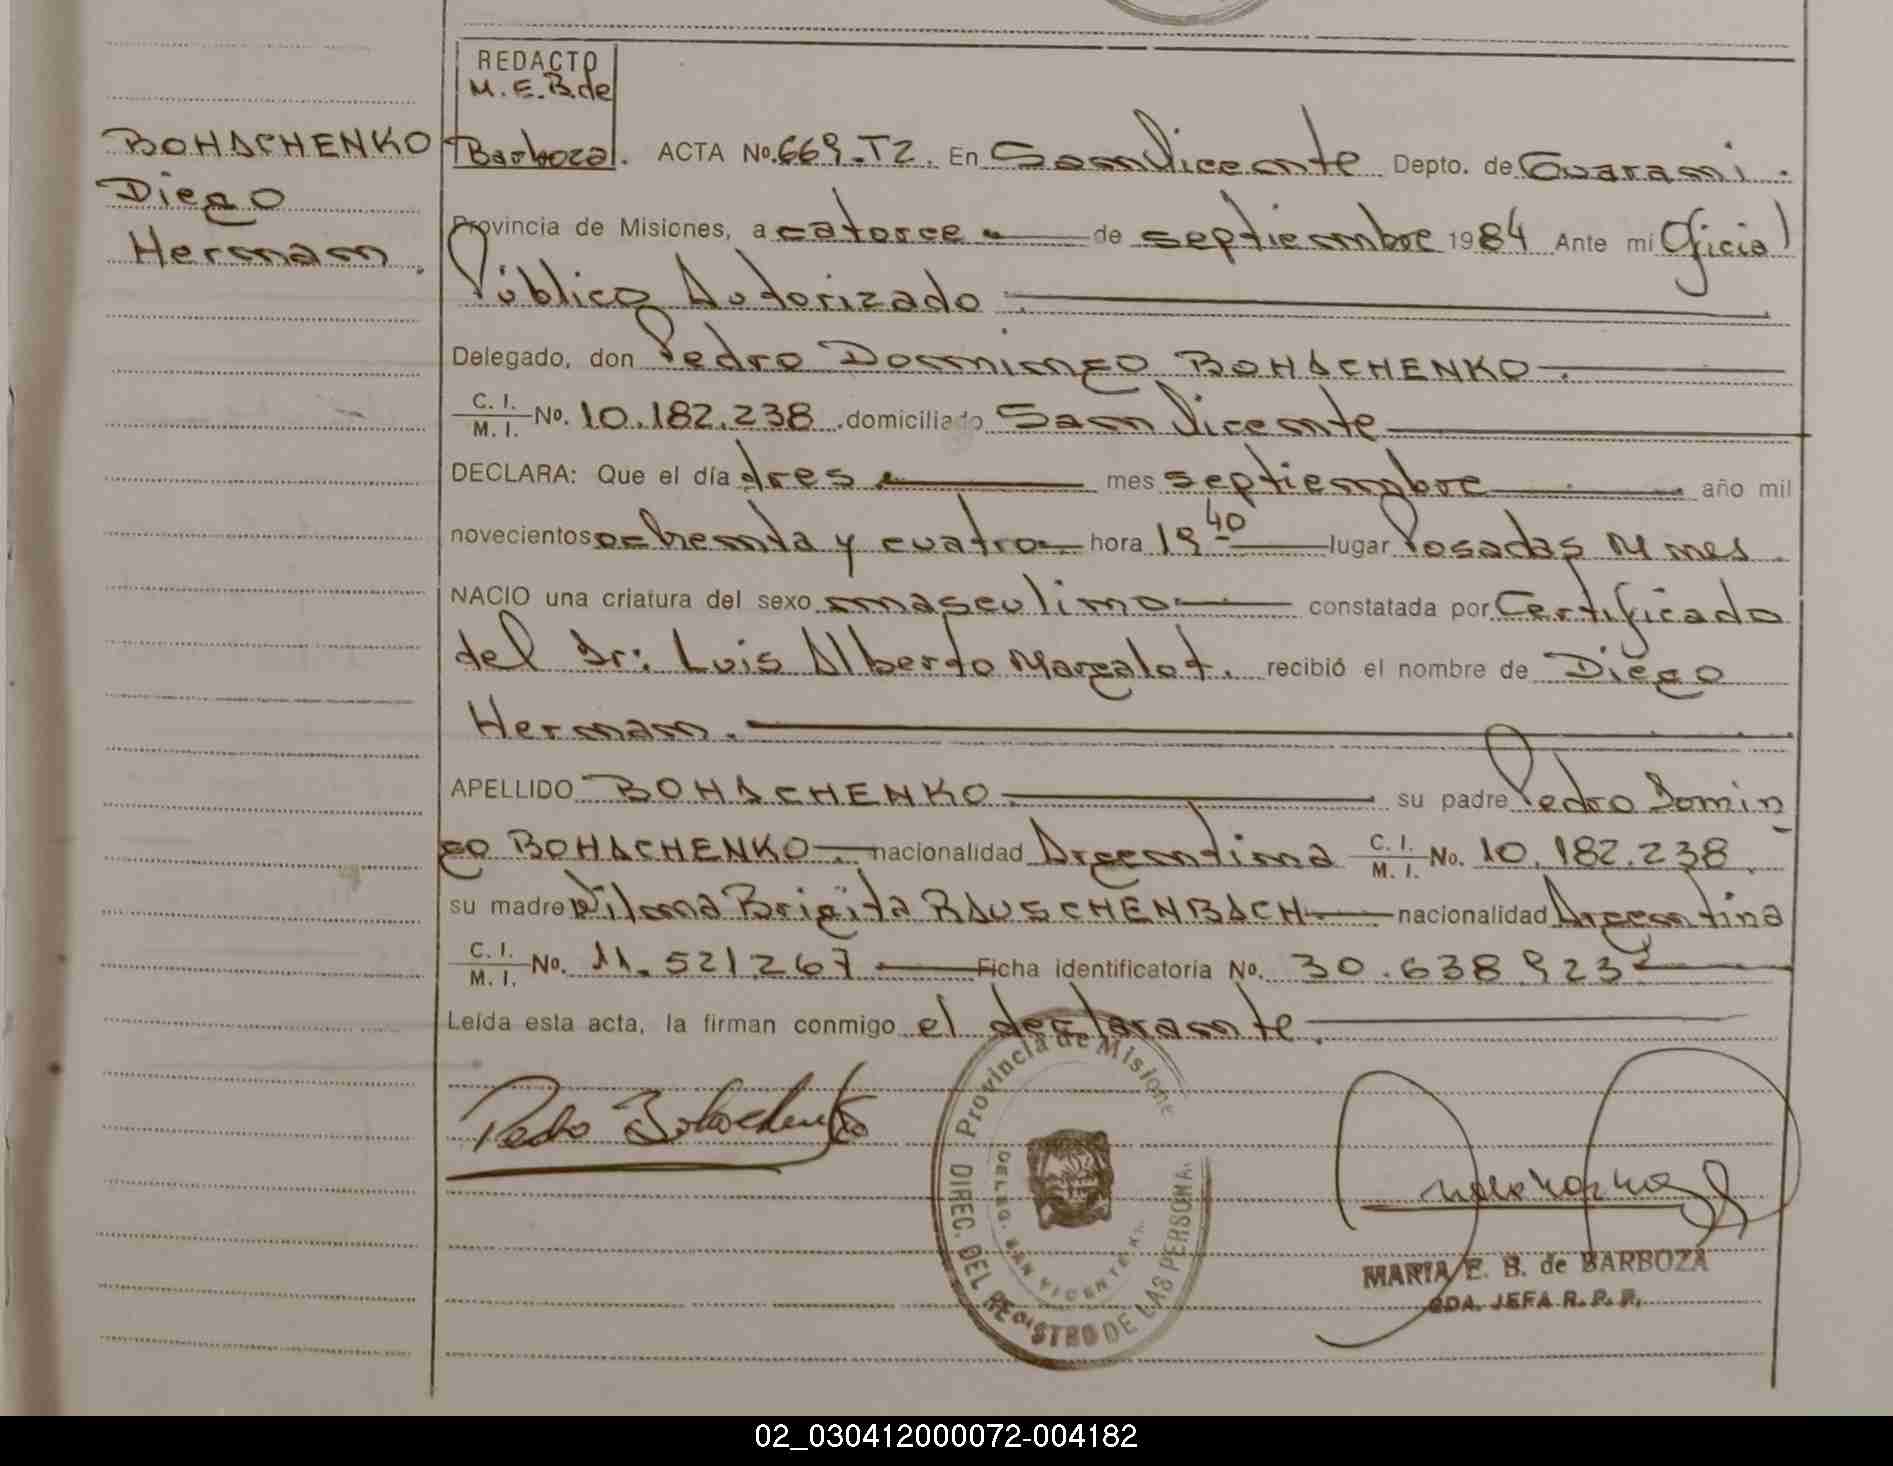 REDACTO
M.E.B.de
BOHACHENKO
Diego
Hernan.
Barboza. ACTA No. 669.T2. En San Vicente Depto. de Guarani.
Provincia de Misiones, a catorce de septiembre 1984 Ante mi Oficial
Público Autorizado
Delegado, don Pedro Domingo BOHACHENKO
C. I.
M. I. No. 10.182.238 domiciliado San Vicente
DECLARA: Que el día tres mes septiembre año mil
novecientos ochenta y cuatro hora 19 40 lugar Posadas Mnes
NACIO una criatura del sexo masculino constatada por Certificado
del Dr: Luis Alberto Margalot. recibió el nombre de Diego
Hernan.
APELLIDO BOHACHENKO su padre Pedro Domin
go BOHACHENKO nacionalidad Argentina C. I. M. I. No. 10.182.238
su madre Vilma Brigita RAUSCHENBACH nacionalidad Argentina
C. I.
M. I. No. 11.521267 Ficha identificatoria No. 30.638923
Leída esta acta, la firman conmigo el declarante
Pedro Bohachenko
Provincia de Misione
DIREC. DEL REGISTRO DE LAS PERSONA.
DELEG. SAN VICENTE
MARIA E. B. de BARBOZA
JEFA R. P. P.
02_030412000072-004182